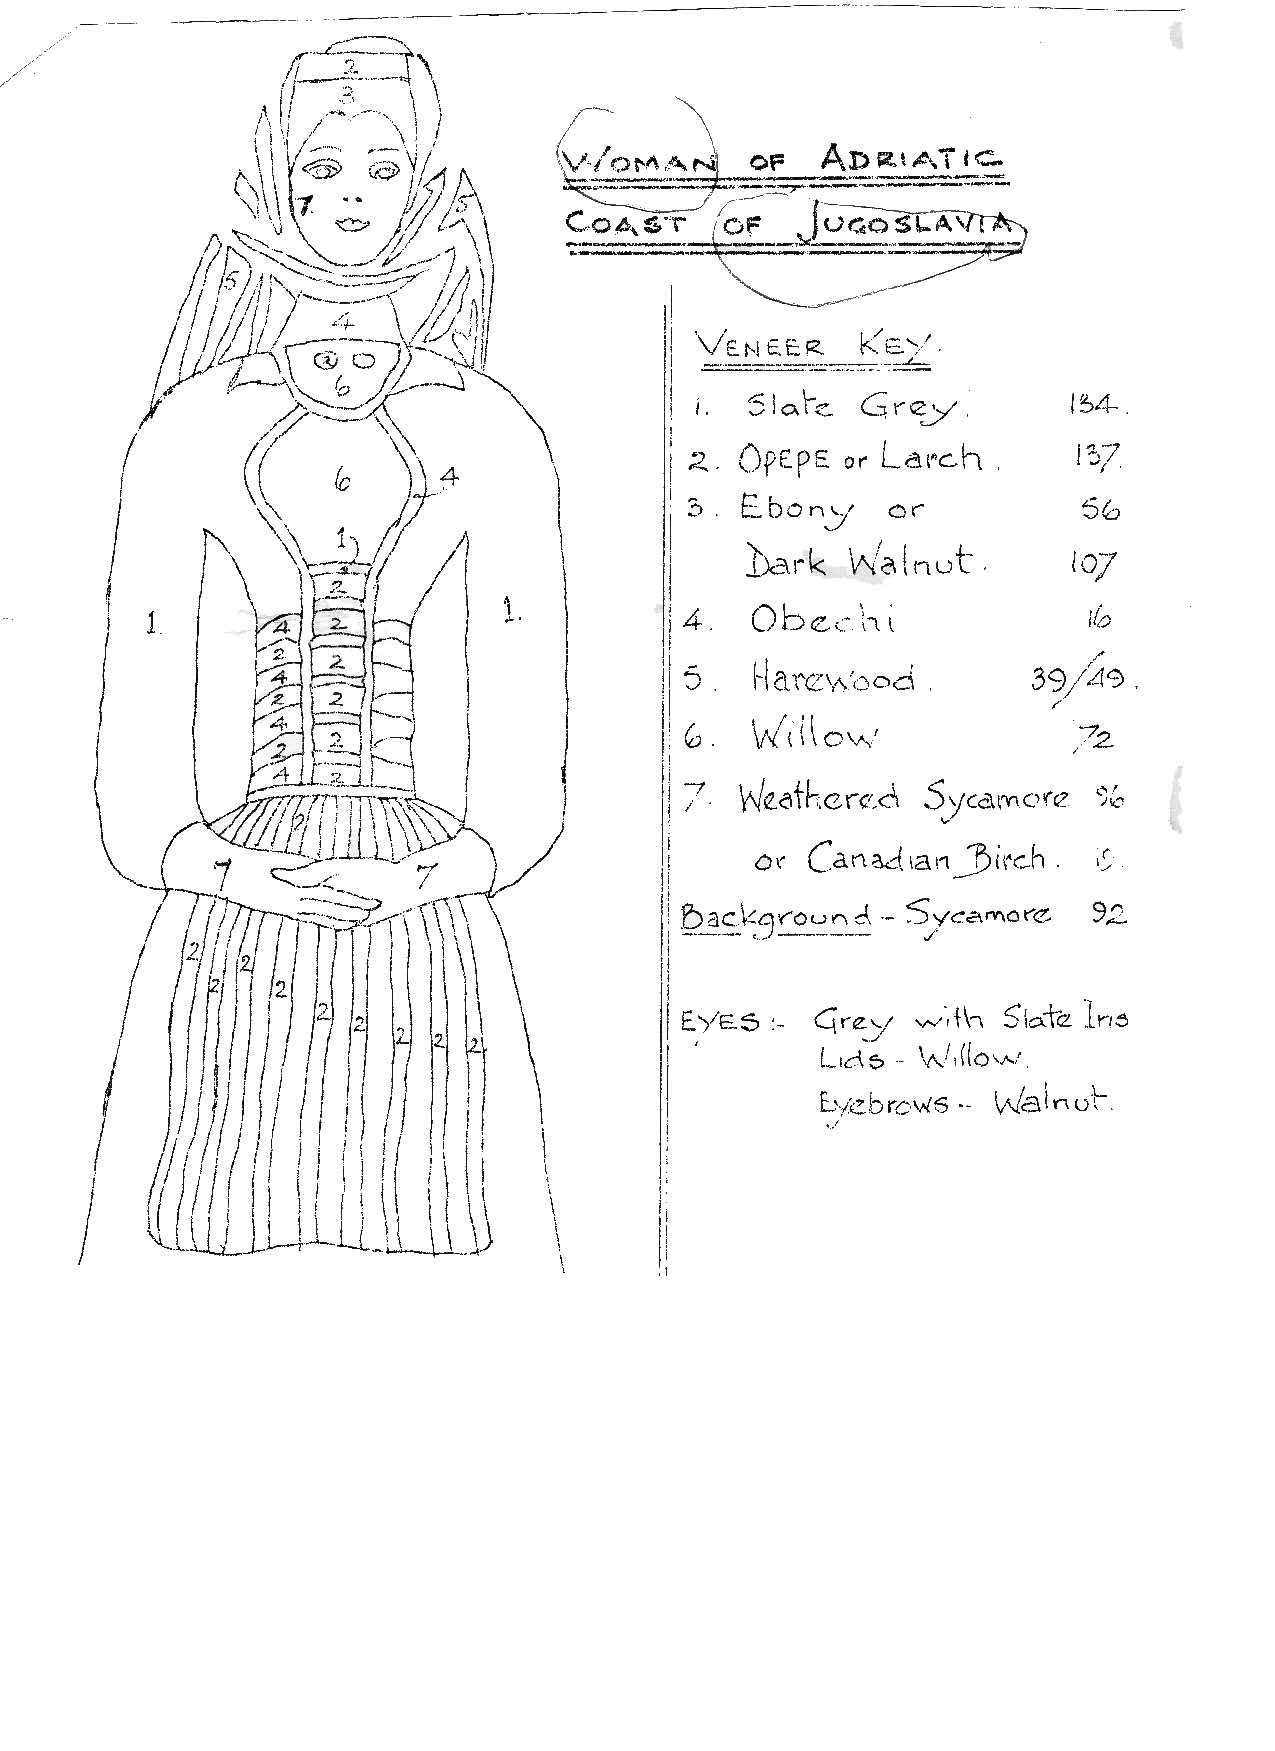 WOMAN OF ADRIATIC
COAST OF JUGOSLAVIA
VENEER KEY.
1. Slate Grey. 134.
2. OPEPE or Larch. 137.
3. Ebony or 56
Dark Walnut. 107
4. Obechi 16
5. Harewood. 39/49.
6. Willow 72
7. Weathered Sycamore 96
or Canadian Birch.
Background - Sycamore 92
EYES :- Grey with Slate Iris
Lids - Willow.
Eyebrows - Walnut.
2
3
7.
5
5
4
6
6
4
1
2
1.
1.
4
2
2
2
4
2
2
4
2
2
4
2
2
7
7
2
2
2
2
2
2
2
2
2
2